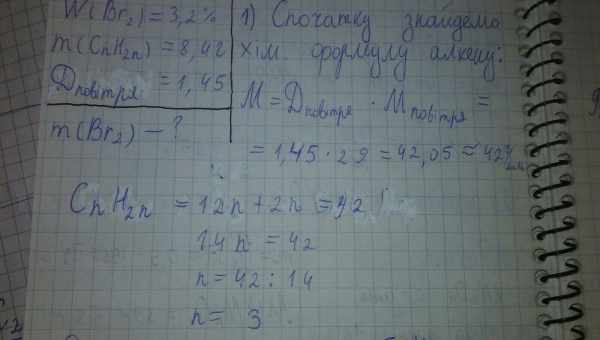 W(Br₂) = 3,2%
m(CnH₂n) = 8,4г
Dповітря = 1,45
m(Br₂) – ?
1) Спочатку знайдемо
хім. формулу алкену:
M = Dповітря · Mповітря =
= 1,45 · 29 = 42,05 ≈ 42
CnH₂n = 12n + 2n = 42
14n = 42
n = 42 : 14
n = 3